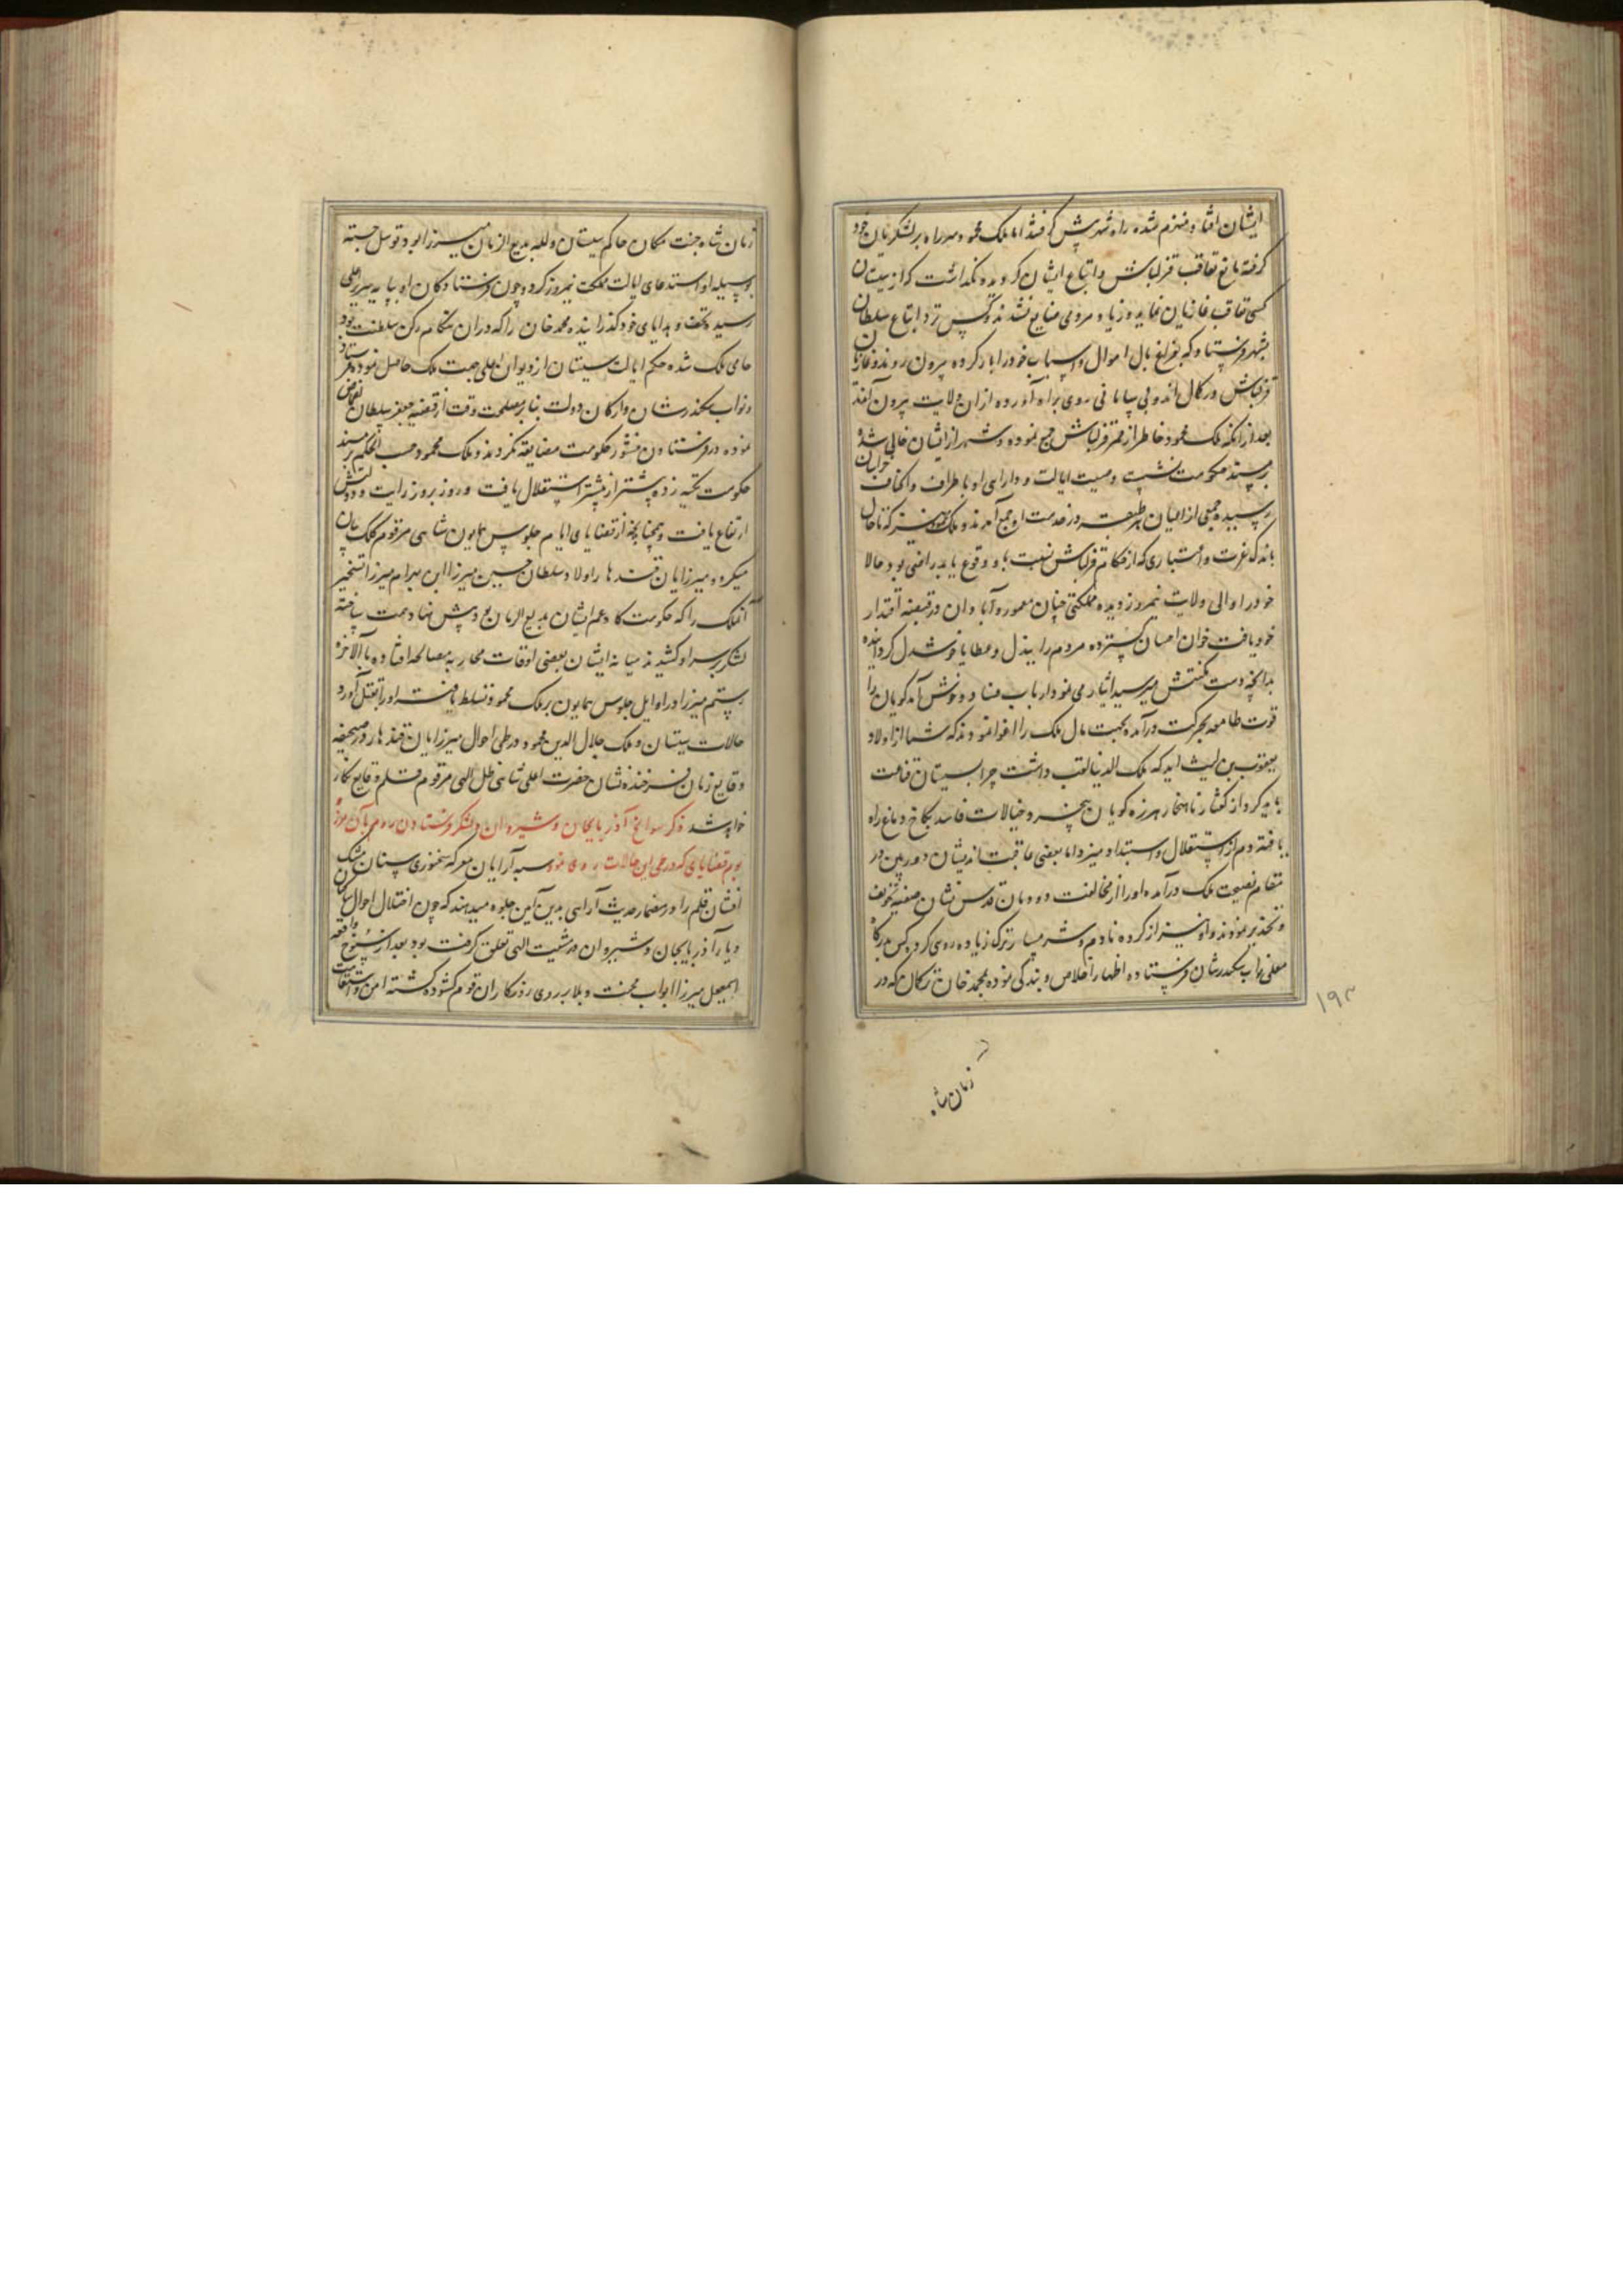 ایشان افتاد و منهزم شده راه شهر پیش گرفتند اما ملک محمود سر راه بر لشکریان خود
گرفته مانع تعاقب قزلباش و اتباع ایشان گردیده نگذاشت که از سیستان
کسی تعاقب غازیان نماید و زیاده مردمی ضایع نشدند و کس نزد اتباع سلطان
بشهر فرستاد که بفراغ بال اموال و اسباب خود را بار کرده بیرون روند و غازیان
قزلباش در کمال اندوهی بیابانی روی براه آورده از ان ولایت بیرون آمدند
بعد از انکه ملک محمود خاطر از ممر قزلباش جمع نموده و شهر از ایشان خالی شده
بر مسند حکومت نشست وصیت ایالت و دارایی او باطراف و اکناف خراسان
رسیده جمعی از اعیان هر طبقه در خدمت او جمع آمدند و ملک محمود نیز که تا حال
باندک عزت و اعتباری که از حکام قزلباش نسبت باو وقوع یابد راضی بود حالا
خود را والی ولایت نیمروز دیده مملکتی چنان معمور و آبادان در قبضه اقتدار
خود یافت خوان احسان گسترده مردم را ببذل و عطایا خوشدل گردانیده
بدانچه دست مکنتش میرسید ایثار می نمود ارباب فساد و خوش آمد گویان را
قوت طامعه بحرکت درآمده بجهت مال ملک را اغوا نمودند که شما از اولاد
یعقوب بن لیث اید که ملک الدنیا لقب داشت چرا بسیستان قناعت
باید کرد از گفتار ناهنجار هرزه گویان هیچ نسر و خیالات فاسد بکاخ دماغ راه
یافته دم از استقلال و استبداد میزد اما بعضی عاقبت اندیشان دوربین در
مقام نصیحت ملک درآمده او را از مخالفت دودمان قدس نشان صفویه تخویف
و تحذیر نمودند و او نیز از کرده نادم و شرمسار ترک زیاده روی کرد و کس بدرگاه
معلی نواب سکندرشان فرستاده اظهار اخلاص و بندگی نموده بمحمد خان ترکمان که در
۱۹۳
زمان شاه
زمان شاه جنت مکان حاکم سیستان و لله بدیع الزمان میرزا بود توسل جسته
بوسیله او استدعای ایالت مملکت نیمروز کرد و چون فرستادگان او بپایه سریر اعلی
رسیده تحف و هدایای خود گذرانیده محمد خان را که در ان هنگام رکن سلطنت بود
حامی ملک شده حکم ایالت سیستان از دیوان اعلی جهت ملک حاصل نموده فرستاد
و نواب سکندرشان و ارکان دولت بنابر مصلحت وقت از قضیه جعفر سلطان اغماض
نموده در فرستادن منشور حکومت مضایقه نکردند و ملک محمود حسب الحکم بر مسند
حکومت تکیه زده پیشتر از پیشتر استقلال یافت و روز بروز رایت دولتش
ارتفاع یافت و چنانچه از قضایای ایام جلوس همایون شاهی مرقوم کلک بیان
میگردد میرزایان قندهار اولاد سلطان حسین میرزا ابن بهرام میرزا تسخیر
آنملک را که حکومت گاه عم ایشان بدیع الزمان بود پیش نهاد همت ساخته
لشکر بر سر او کشیدند میانه ایشان بعضی اوقات محاربه بمصالحه افتاده بالاخره
رستم میرزا در اوایل جلوس همایون بر ملک محمود تسلط یافته او را بقتل آورد
حالات سیستان و ملک جلال الدین محمود در طی احوال میرزایان قندهار در صحیفه
وقایع زمان فرخنده نشان حضرت اعلی شاهی ظل الهی مرقوم قلم وقایع نگار
خواهد شد ذکر سوانح آذربایجان و شیروان و لشکر فرستادن روم بآن مرز
بوم قضایای که در طی این حالات روی نمود سپه آرایان معرکه سخنوری سنان مشک
افشان قلم را در مضمار حدیث آرایی بدین آیین جلوه میدهند که چون اختلال احوال ساکنان
دیار آذربایجان و شیروان در مشیت الهی تعلق گرفته بود بعد از سنوح واقعه
اسمعیل میرزا ابواب محنت و بلا بر روی روزگار ان قوم گشوده گشته امن و استقامت